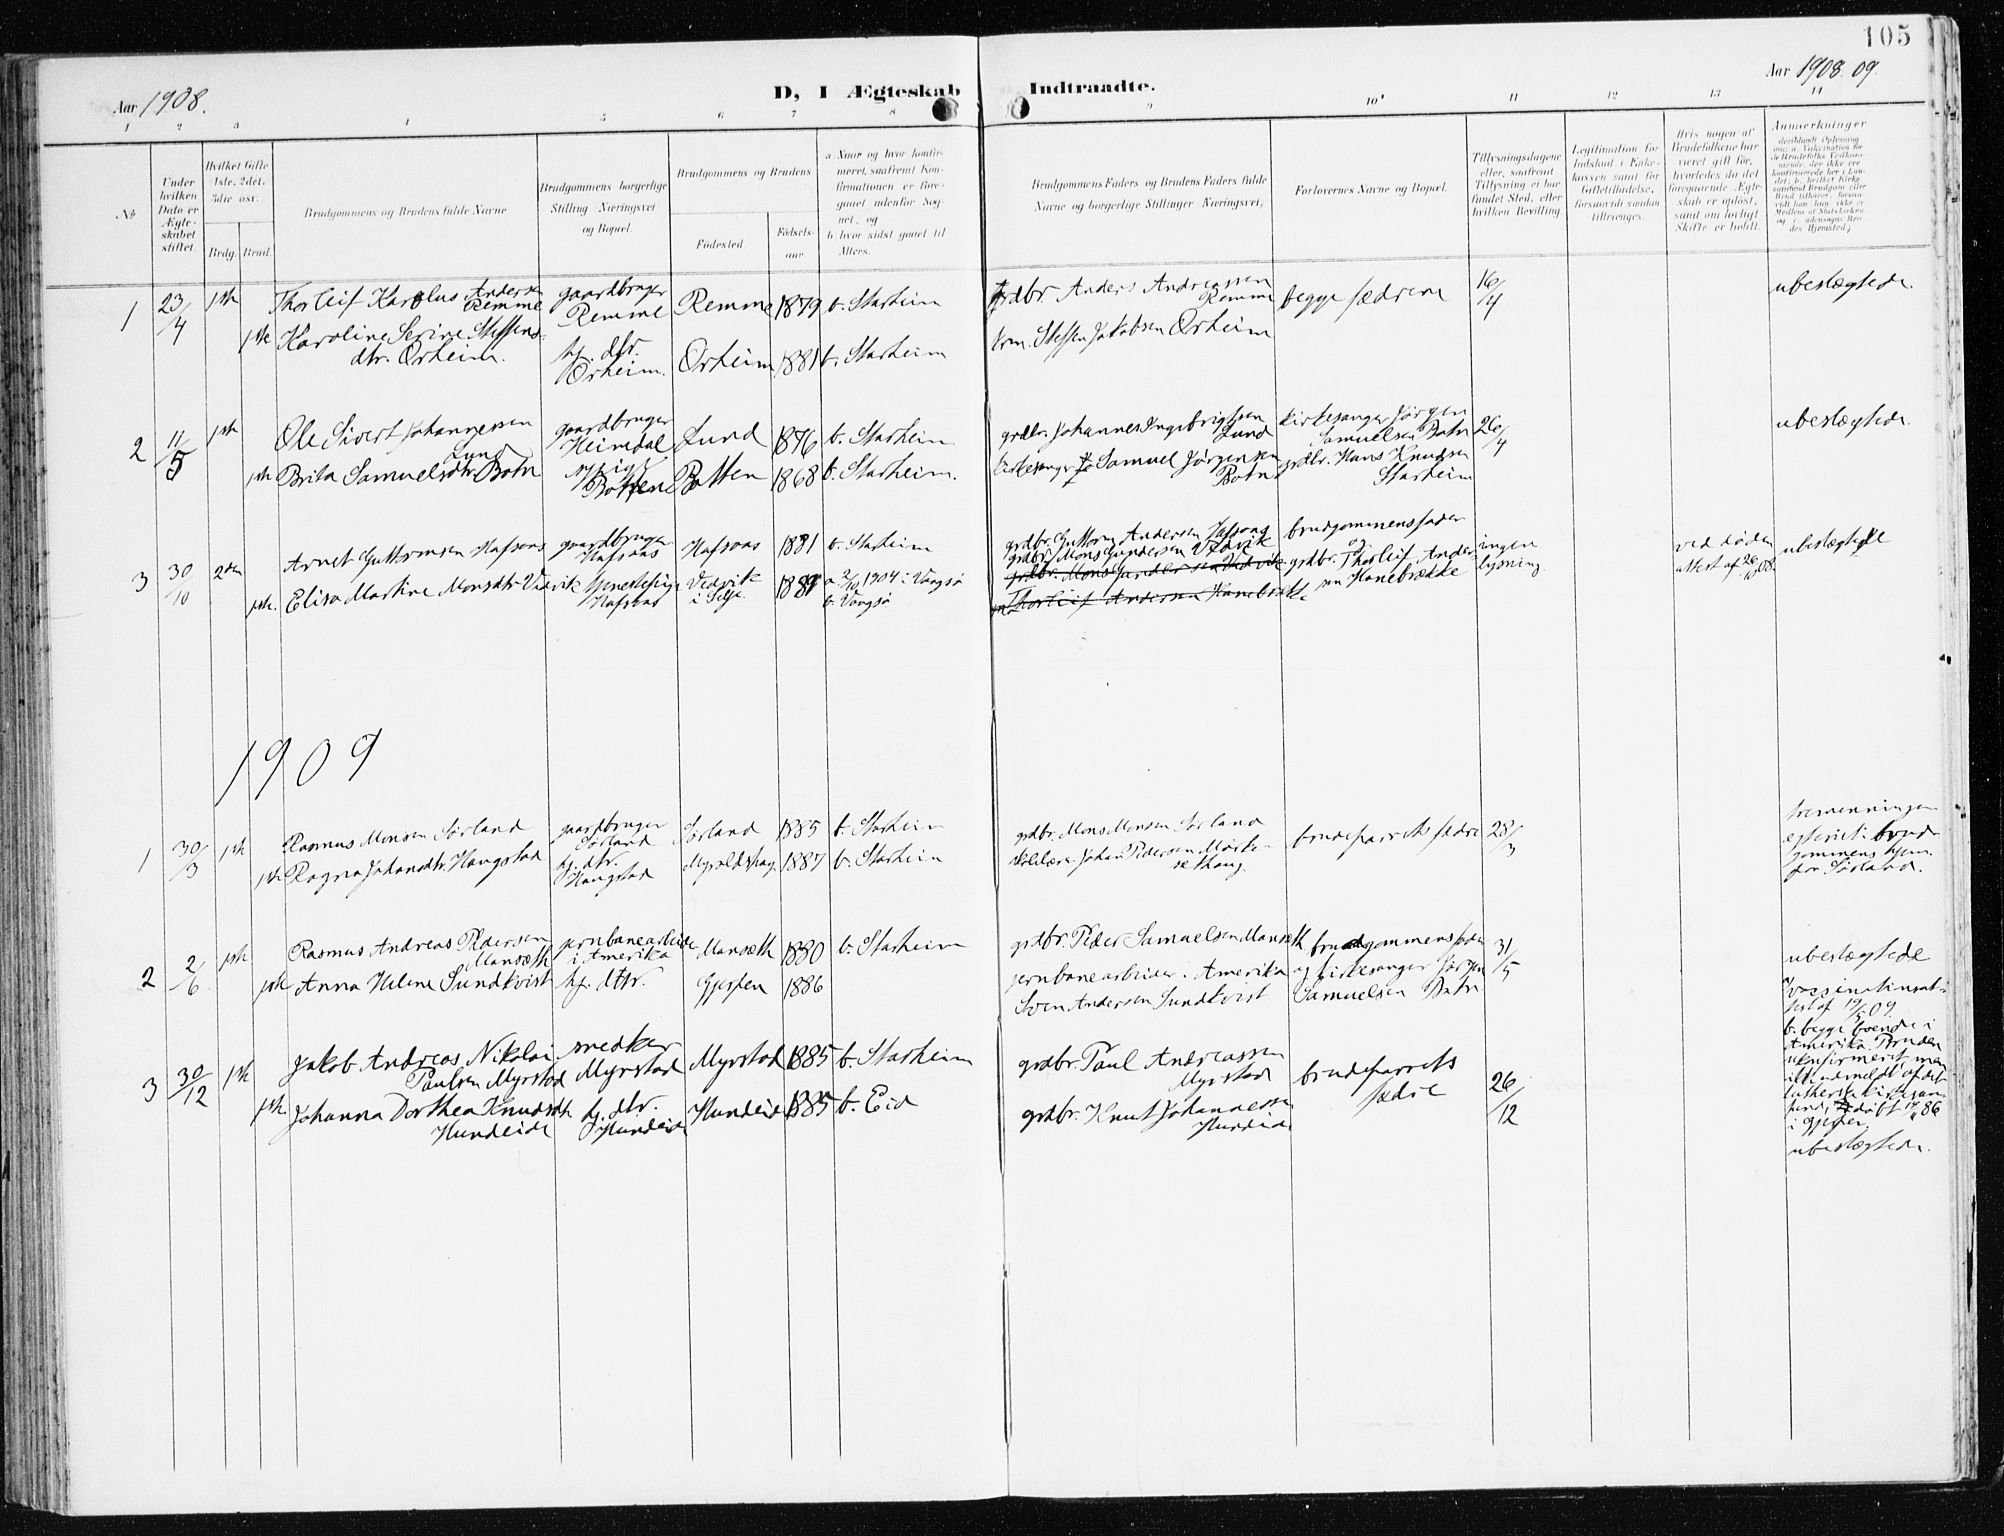 105
Aar 1908.
D, I Ægteskab Indtraadte.
Aar 1908. 09.
1 2 3 4 5 6 7 8 9 10 11 12 13 14
No
Under hvilken Dato er Ægteskabet stiftet.
Hvilket Gifte 1ste. 2det. 3die osv.
Brdg. Brud.
Brudgommens og Brudens fulde Navne
Brudgommens borgerlige Stilling Næringsvei og Bopæl.
Brudgommens og Brudens
Fødested.
Fødsels-aar.
a Naar og hvor konfirmeret, saafremt Konfirmationen er foregaaet udenfor Sognet, og
b. hvor sidst gaaet til Alters.
Brudgommens Faders og Brudens Faders fulde Navne og borgerlige Stillinger Næringsvei,
Forlovernes Navne og Bopæl.
Tillysningsdagene eller, saafremt Tillysning ei har fundet Sted, efter hvilken Bevilling
Legitimation for Indskud i Enkekassen samt for Giftetilladelse, forsaavidt saadan tiltrænges.
Hvis nogen af Brudefolkene har været gift før, hvorledes da det foregaaende Ægteskab er opløst, samt om lovligt Skifte er holdt.
Anmerkninger
1 23/4 1ste Thorleif Karolus Andersen Remme gaardbruger Remme Remme 1879 b. Starheim grdbr. Anders Andreassen Remme begge fædrene 16/4 ubeslægtede.
1ste Karoline Serine Steffensdtr. Ørheim. hj. dtr. Ørheim. Ørheim 1881 b. Starheim Steffen Jakobsen Ørheim
2 11/5 1ste Ole Sivert Johannessen Lund gaardbruger Heimdal Lund 1876 b. Starheim grdbr. Johannes Ingebrigtsen Lund kirkesanger Jørgen Samuelsen Botn 26/4 ubeslægtede.
1ste Brita Samuelsdtr Botn Botten 1868 b. Starheim. kirkesanger Samuel Jørgensen Botn grdbr. Hans Knudsen Starheim
3 30/10 2den Arnet Guttormsen Hafsaas gaardbruger Hafsaas Hafsaas 1881 b. Starheim grdbr. Guttorm Andersen Hafsaas brudgommens fader og ingen lysning. ved døden ubeslægtede
grdbr. Mons Gundersen Vedvik
1ste. Elisa Martine Monsdtr Vedvik tjenestepige Hafsaas Vedvik i Selje 1889 a. 2/10 1904 i Vaagsø b. Vaagsø grdbr. Mons Gundersen Vedvik grdbr. Thorleif Andersen Hanebrække
Thorleif Andersen Hanebrække
1909
1 30/3 1ste Rasmus Monsen Sørland gaardbruger Sørland Sørland 1885 b. Starheim grdbr. Mons Monsen Sørland brudeparrets fædre 28/3 tremenninger
1ste Ragna Johansdtr. Haugstad hj. dtr. Haugstad 1887 b. Starheim Johan Pedersen brudgommens hjem paa Sørland.
2 2/6 1ste Rasmus Andreas Pedersen Mansæth jernbanearbeider i Amerika Mansæth 1880 b. Starheim grdbr. Peder Samuelsen Mansæth brudgommens fader 31/5 ubeslægtede
1ste Anna Helene Sundkvist hj. dttr. 1886 jernbanearbeider. Amerika Sven Andersen Sundkvist og kirkesanger Jørgen Samuelsen Botn
b. begge boende i Amerika. Bruden
3 30/12 1ste Jakob Andreas Nikolai Paulsen Myrstad snedker Myrstad Myrstad 1885 b. Starheim grdbr. Paul Andreassen Myrstad brudeparrets fædre 26/12
1ste Johanna Dorthea Knudsdtr. Hundeide hj. dtr. Hundeide Hundeide 1885 b. Eid grdbr. Knut Johannessen Hundeide ubeslægtede.